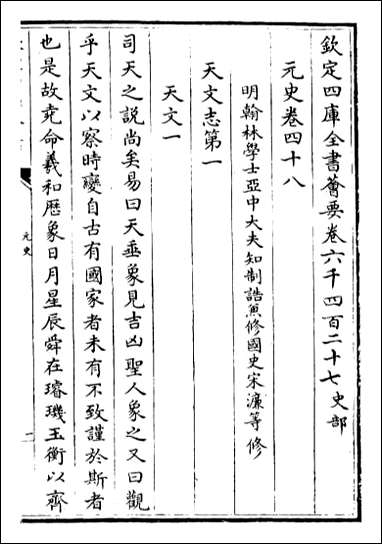 欽定四庫全書薈要卷六千四百二十七史部
元史卷四十八
明翰林學士亞中大夫知制誥兼修國史宋濂等修
天文志第一
天文一
司天之說尚矣易曰天垂象見吉凶聖人象之又曰觀
乎天文以察時變自古有國家者未有不致謹於斯者
也是故堯命羲和歴象日月星辰舜在璿璣玉衡以齊
元史